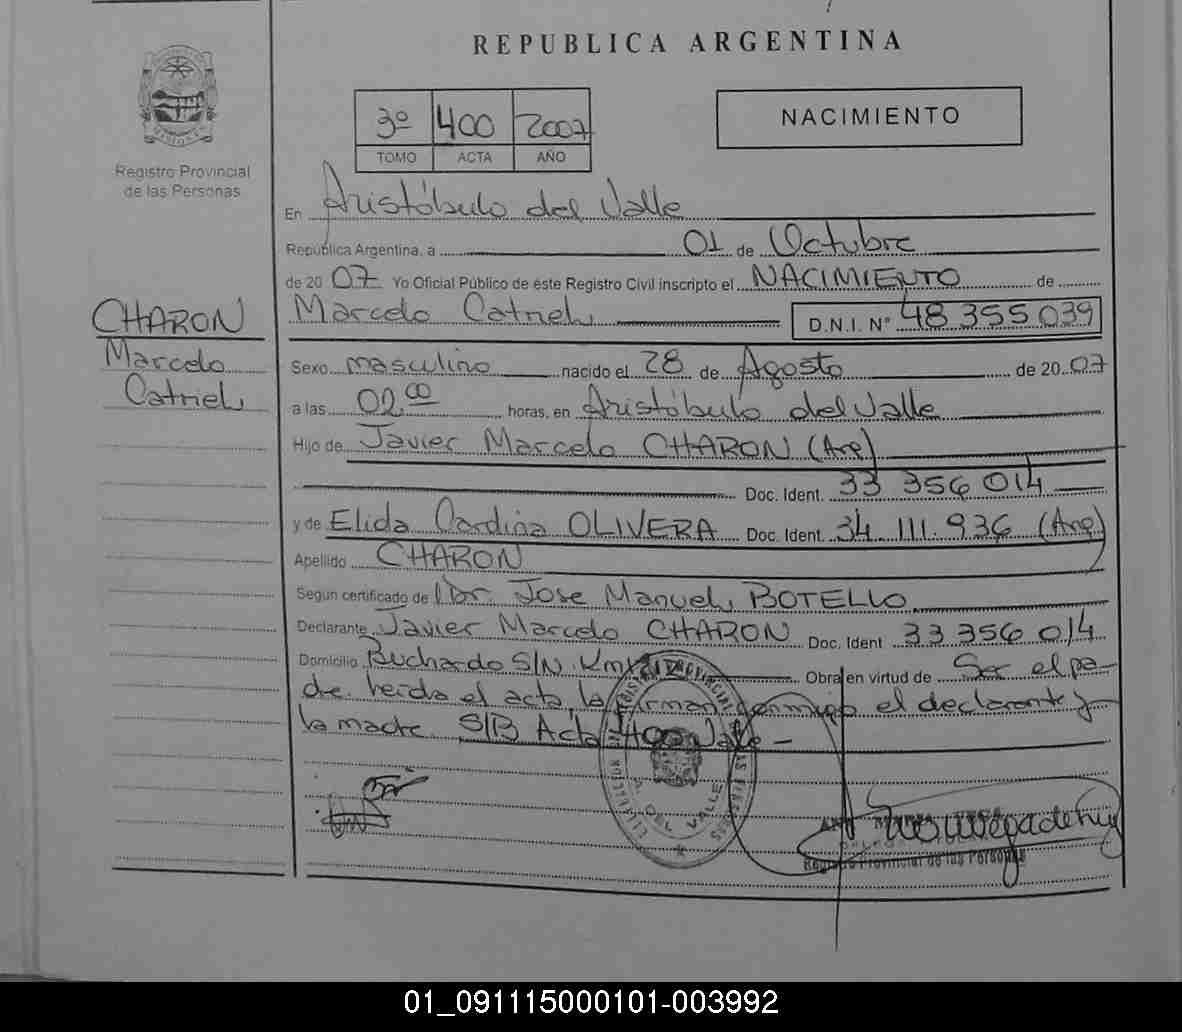 REPUBLICA ARGENTINA
NACIMIENTO
3º 400 2007
TOMO ACTA AÑO
Registro Provincial
de las Personas
En Aristóbulo del Valle
República Argentina, a 01 de Octubre
de 20 07 Yo Oficial Público de éste Registro Civil inscripto el NACIMIENTO de
CHARON
Marcelo
Catriel
Marcelo Catriel D.N.I. Nº 48 355 039
Sexo masculino nacido el 28 de Agosto de 20 07
a las 02 00 horas, en Aristóbulo del Valle
Hijo de Javier Marcelo CHARON (Arg)
Doc. Ident. 33 356 014
y de Elida OLIVERA Doc. Ident. 34 111.936 (Arg)
Apellido CHARON
Segun certificado de Dr. Jose Manuel BOTELLO
Declarante Javier Marcelo CHARON Doc. Ident 33 356 014
Domicilio Buchardo S/N Km Obra en virtud de Ser el pa-
dre leida el acta, la firman conmigo el declarante y
la madre. S/B Acta 400 Valle -
A. DEL VALLE
Registro Provincial de las Personas
01_091115000101-003992